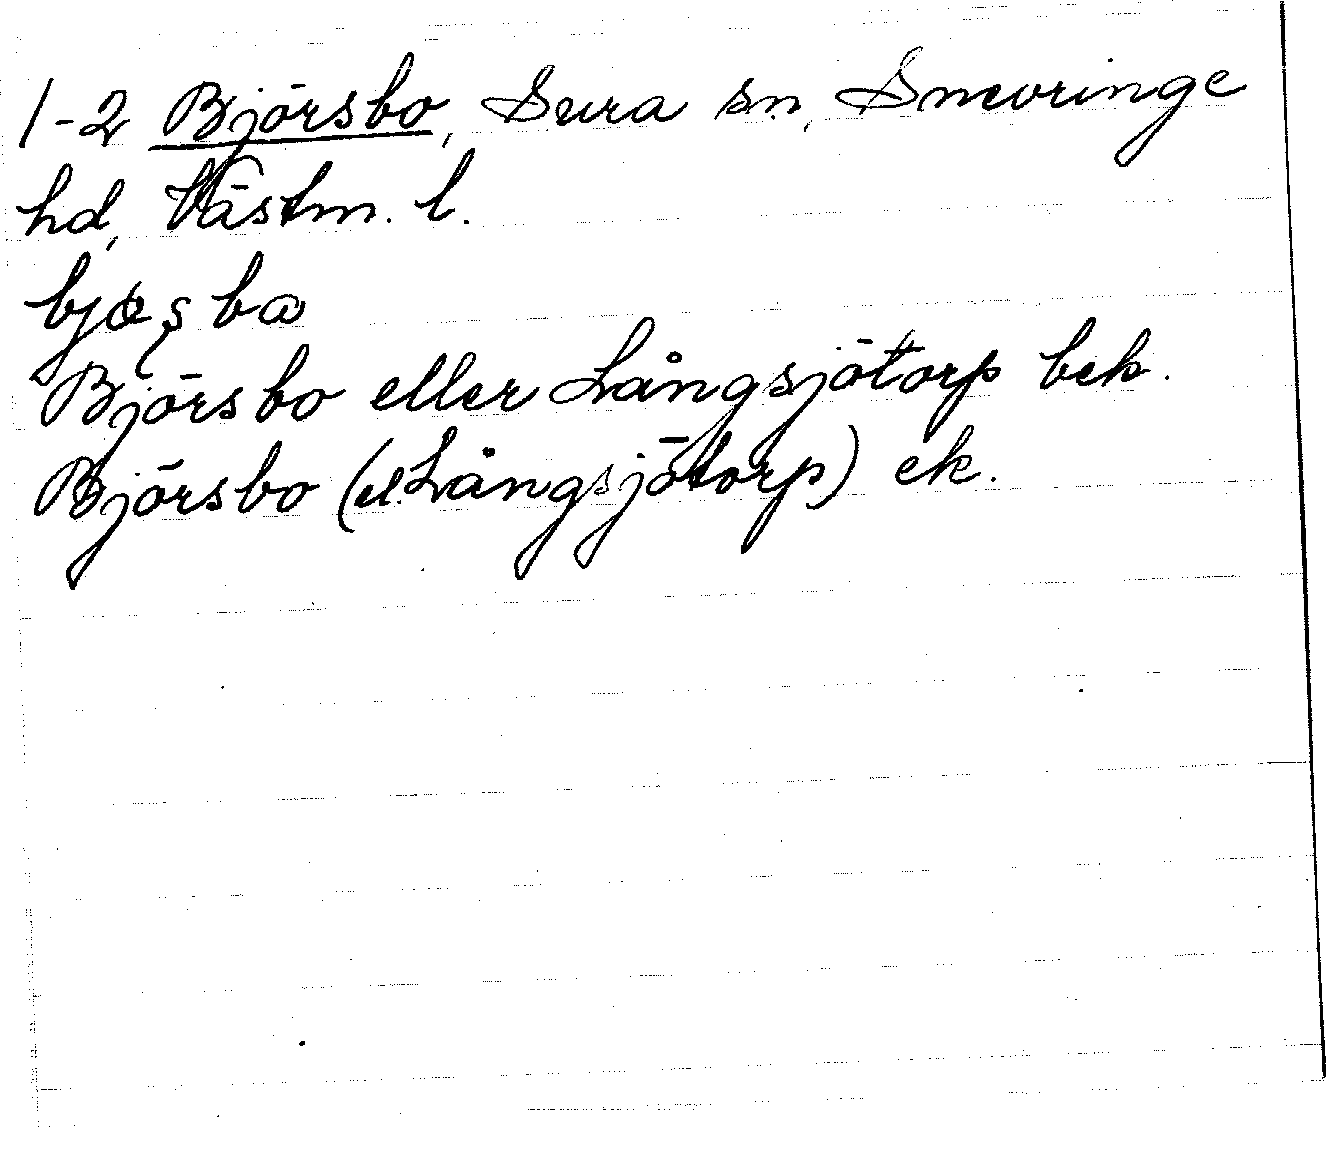 1-2 Björsbo, Sura sn, Snevringe
hd, Västm. l.
Björsbo eller Långsjötorp bek.
Björsbo (el. Långsjötorp) ek.